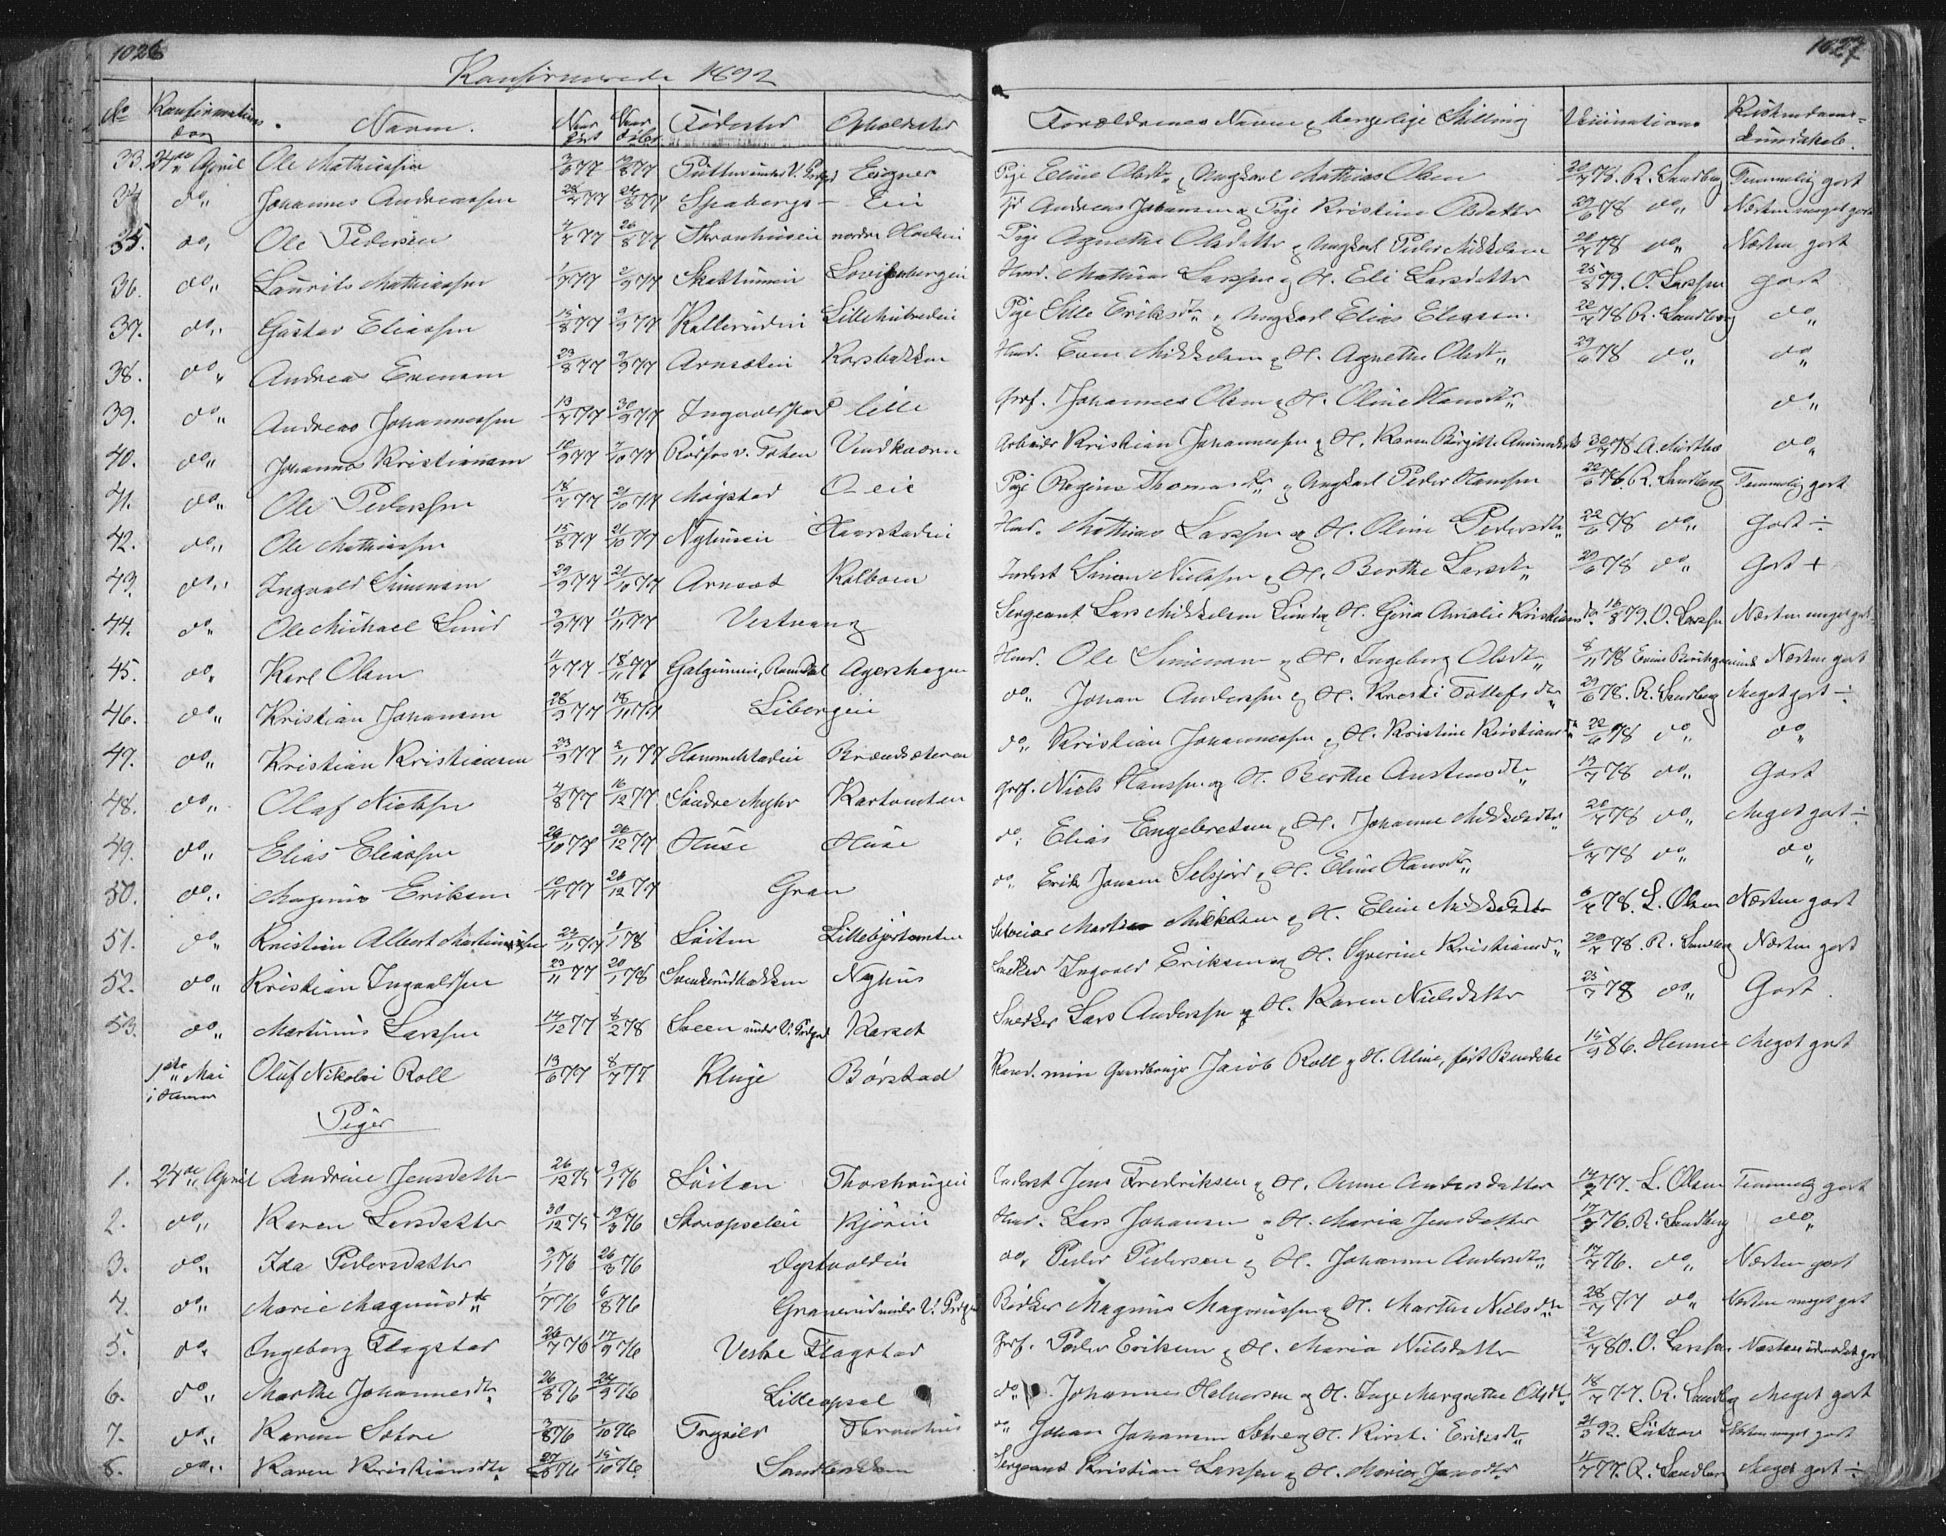 1026
Konfirmerede 1892
No Konfirmations dag Navn. Naar født Naar døbt Fødested Opholdssted
33. 24de April Ole Mathiassen 77 77 Eiegner
34. do Johannes Andreassen 28/2 77 24/8 77 Spabergs- Eie
35. do Ole Pedersen 77 26/8 77 nordre
36. do Laurits Mathiassen 77 2/9 77 Skattumeie
37. do Gustav Eliassen 77 77 Kallerudeie
38. do Andreas Evensen 23/8 77 9/9 77 Arnseteie Korsbakken
39. do Andreas Johannessen 13/7 77 30/9 77 Ingvoldstad lille
40. do Johannes Kristiansen 10/9 77 7/10 77 v. Toten Vindkaarn
41. do Ole Pedersen 18/7 77 21/10 77 Møystad
42. do Ole Mathiassen 15/8 77 21/10 77 Nyhuseie Haarstadeie
43. do Ingvald Simensen 29/9 77 77 Arnset Kalboen
44. do Ole Michael Lund 9/9 77 11/11 77 Vestvang
45. do Karl Olsen 11/7 77 18/11 77 Agershagen
46. do Kristian Johansen 28/9 77 18/11 77 Libergeie
47. do Kristian Kristiansen 23/9 77 2/11 77 Brændsæteren
48. do Olaf Nielsen 4/8 77 16/12 77 Søndre Myhr Kartomten
49. do Elias Eliassen 26/10 77 26/12 77 Huse Huse
50. do Magnus Eriksen 10/11 77 26/12 77 Gran
51. do Kristian Albert 24/11 77 1/1 78 Løiten
52. do Kristian Ingvaldsen 23/11 77 20/1 78 Nyhus
53. do Martinus Larssen 14/12 77 6/2 78 Sveen under V. Prgd Karset
1ste Mai i Hamar Oluf Nikolai Roll 13/6 77 8/7 77 Kluge Børstad
Piger
1. 24de April Andrine Jensdatter 26/12 75 9/1 76 Løiten Thorshaugeie
2. do Karen Larsdatter 30/12 75 19/3 76 Storopseleie Kjøseie
3. do Ida Pedersdatter 76 26/3 76 Dystvoldeie
4. do Marie Magnusdtr 1/7 76 6/8 76 Granerud under V. Prgd
5. do Ingeborg Flagstad 26/7 76 17/9 76 Vestre Flagstad
6. do Marthe Johannesdtr 26/8 76 24/9 76 Lilleopsal
7. do Karen Sætre 3/8 76 1/10 76
8. do Karen Kristiansdtr 27/8 76 15/10 76 Sandbakken
1027
Forældrenes Navne og borgerlige Stilling Vaccination Kristendoms-kundskab.
Pige Eline Olsdtr og Ungkarl Mathias Olsen 78. R. Sandberg Temmelig godt
Andreas Johansen og Pige Kristine Olsdatter 29/6 78 do Næsten meget godt
Pige Agnethe Olsdatter og Ungkarl Peder Mikkelsen 78 do Næsten godt
Husm. Mathias Larssen og H. Eli Larsdatter 25/8 79. O. Larssen godt
Pige Sille Eriksdtr og Ungkarl Elias Eliasen. 22/7 78 R. Sandberg do
Husm. Even Mikkelsen og H. Agnethe Olsdtr 29/6 78 do do
Grdf. Johannes Olsen og H. Oline Hansdtr do
Arbeider Kristian Johannessen og H. Karen Birgitte 30/7 78 A. do
Pige Regine Thomasdtr og Ungkarl Peder Hansen 22/6 78. R. Sandberg Temmelig godt
Husm. Mathias Larssen og H. Oline Pedersdtr 22/6 78 do Godt ÷
Inderst Simon Nielssen og H. Berthe Larsdtr 29/6 78 do Godt +
Sergeant Lars Mikkelsen Lund og H. Gina Amalie Kristiansdtr. 16/8 79. O. Larssen Næsten meget godt
Husm. Ole Simensen og H. Ingeborg Olsdtr 8/11 78 Næsten godt
do Johan Anderssen og H. Kersti Tollefsdtr 29/6 78. R. Sandberg Meget godt ÷
do Kristian Johannessen og H. Kristine Kristiansdtr 22/6 78 do do
Grdf. Niels Hanssen og H. Berthe Austensdtr 13/7 78 do Godt
do Elias Engebretsen og H. Johanne Mikkelsdtr 20/7 78 do Meget godt ÷
do Erik Jonsen Selsjord og H. Eline Hansdtr 6/7 78 do do
Martin Mikkelsen og H. Eline Mikkelsdtr 6/7 78. L. Olsen Næsten godt
Snedker Ingvald Eriksen og H. Syverine Kristiansdtr 20/7 78 R. Sandberg Næsten godt
Snedker Lars Anderssen og H. Karen Nielsdatter 25/7 78 do Godt.
Kand. min Grundbruger Jacob Roll og H. Aline, født Bendeke 15/9 86. Hennie Meget godt
Inderst Jens Fredriksen og H. Anne Andersdatter 14/7 77. L. Olsen Temmelig godt
Husm. Lars Johansen og H. Maria Jensdatter 17/7 76. R. Sandberg do
do Peder Pedersen og H. Johanne Andersdtr 17/7 76. do Næsten godt
Bødker Magnus Magnussen og H. Marthe Nielsdtr 28/7 77 do Næsten meget godt
Grdf. Peder Eriksen og H. Maria Nielsdatter 2/7 80. O. Larssen Næsten udmerket godt
do Johannes Halvorsen og H. Inge Margrethe Olsdtr 18/7 77. R. Sandberg Meget godt
do Johan Johansen Sætre og H. Kirsti Eriksdtr 21/3 92. Lützow Næsten meget godt
Sergeant Kristian Larssen og H. Maria Jensdtr 11/7 77. R. Sandberg Meget godt ÷